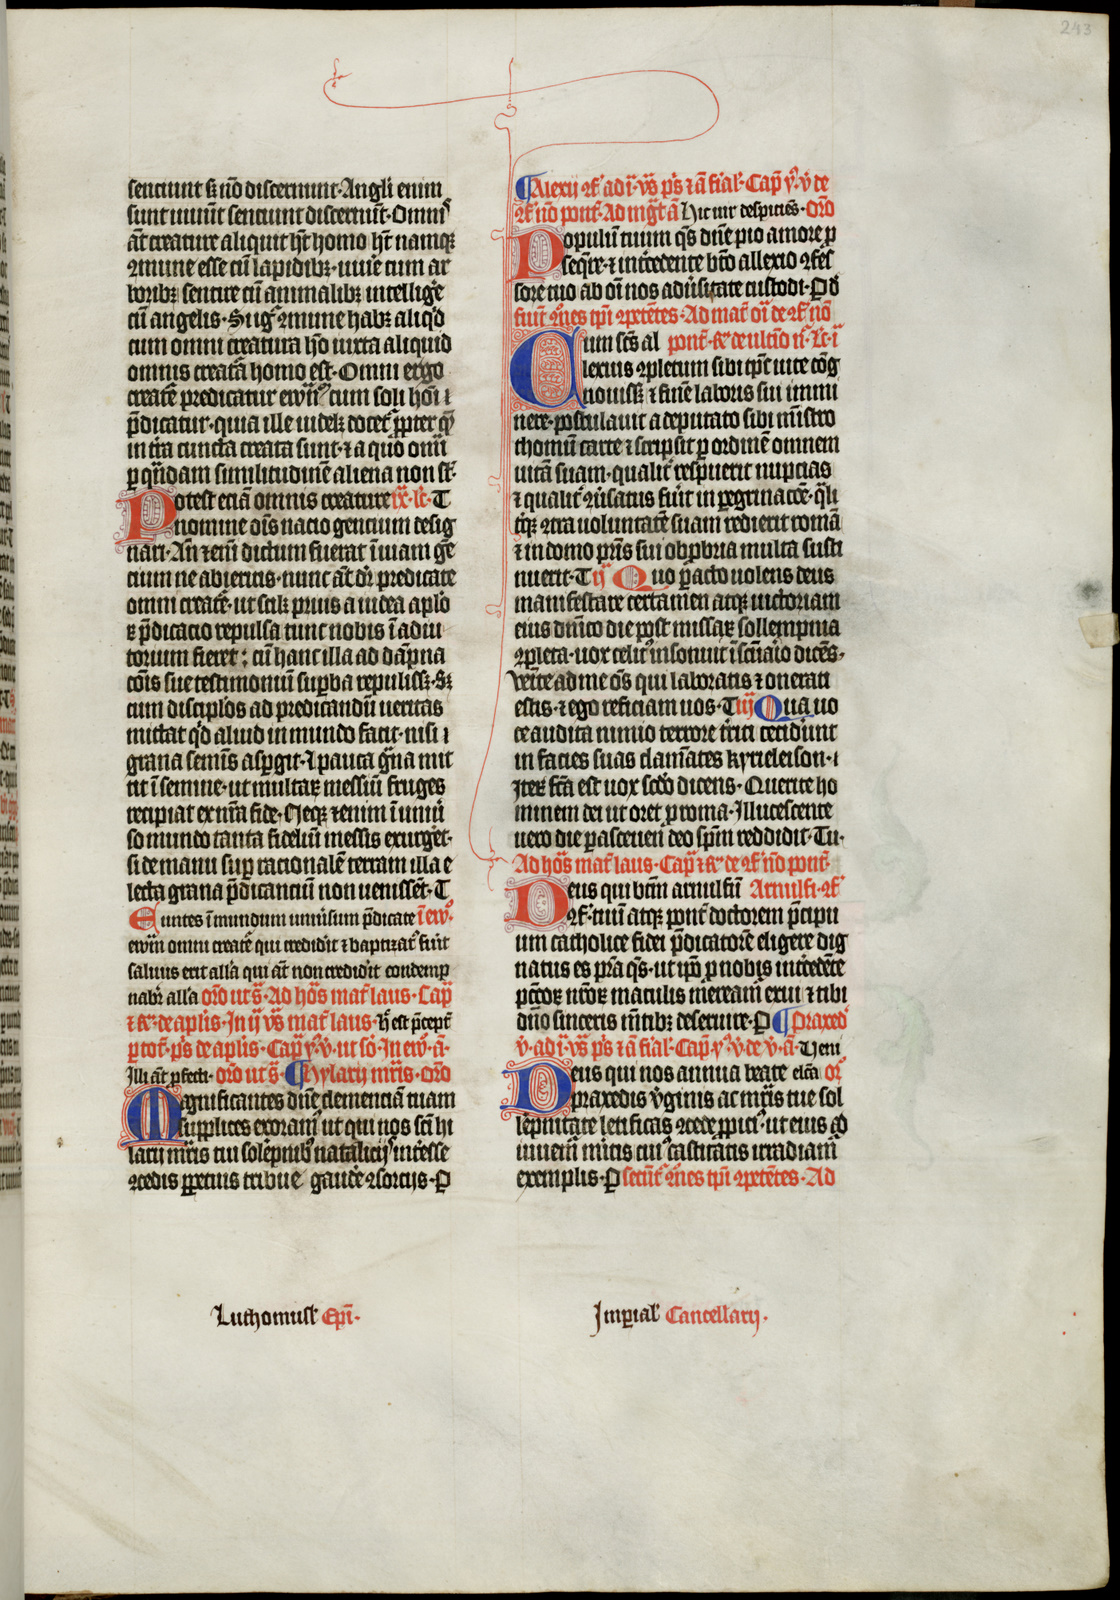 243
sentiunt s; nō discernunt· Angli enim
sunt uiuūt sentiunt discernūt· Omnis
āt creature aliquit ht homo ht namqȝ
ꝯmune esse cū lapidibȝ· uiuē cum ar
boribȝ sentire cū animalibȝ intelligē
cū angelis· Si ꝯmune habȝ aliqd
cum omni creatura ho iuxta aliquid
omnis creatā homo est· Omni ergo
creatē predicatur ewm cum soli homi
p̄dicatur· quia ille uidelȝ docet ꝓpter quē
in trā cuncta creata sunt· ⁊ a quo om̄i
ꝑ quādam similitudinē aliena non st
Potest eciā omnis creature ix· lc· T
nomine oīs nacio gentium desig
nari· An̄ ⁊em̄ dictum fuerat ī uiam gē
cium ne abieritis· nunc āt dr̄ predicate
omni creatē· ut scilȝ prius a iudea aplō
ꝝ p̄dicacio repulsa tunc nobis ī adiu
torium fieret; cū hanc illa ad dāpna
cōis sue testimoniū suꝑba repulissȝ· Sȝ
cum discipl'os ad predicandū ueritas
mittat qd aliud in mundo facit· nisi
grana seminis aspgit· ⁊ pauca gna mit
tit ī semine· ut multaꝝ messiū fruges
recipiat ex nrā fide· Neqȝ ⁊enim ī uniū
so mundo tanta fideliū messis exurget·
si de manu suꝑ racionalē terram illa e
lecta grana p̄dicanciū non uenissēt· T
Euntes ī mundum uniūsum p̄dicate ī ew·
ewm omni creatē qui credidit ⁊ baptizat fūit
saluus erit all'a qui āt non credidit condemp
nabr all'a oro ut s· Ad hōs mat laus· Cap
⁊ R de aplis· In ij vs mat laus· h est p̄cept
ꝑ tot· ps de aplis· Cap y v· ut so· In ew· ā·
Illi āt ꝑfecti· oro ut s· Hylarij mris· oro
Magnificantes dn̄e clemenciā tuam
supplices exoram ut qui nos scī hi
larij mris tui solēpnibȝ natalicijs intēsse
ꝯcedis ꝑpetuis tribue gaudē ꝯsorcijs· P
Alexij ꝯf ad i· vs ps ⁊ ā fial· Cap y· v de
ꝯf nō pont· Ad mgt ā Hic uir despiciēs· oro
Populū tuum qs dn̄e pio amore ꝑ
seqre· ⁊ intcedente bto allexio ꝯfes
sore tuo ab oī nos adusitate custodi· P d
fiūt om̄es tpi ꝯpetētes· Ad mat oīa de ꝯf nō
Cum scs al pont· R de ultio n· Lc· i
lexius ꝯpletum sibi tpt uite cōg
nouissȝ ⁊ finē laboris sui immi
nere· postulauit a deputato sibi mistro
thomū carte ⁊ scripsit ꝑ ordinē omnem
uitā suam· qualit respuerit nupcias
⁊ qualit ꝯūsatus fūit in ꝑegrinacōe· qli
tqȝ ꝯtra uoluntatē suam redierit romā
⁊ in domo pris sui obꝓbria multa susti
nuerit· T ij Quo ꝑacto uolens deus
manifestare certamen atqȝ uictoriam
eius dn̄ico die post missaꝝ sollempnia
ꝯpleta· uox celit insonuit ī scn̄ario dicēs·
Venite ad me oēs qui laboratis ⁊ onerati
estis· ⁊ ego reficiam uos· T iij Qua uo
ce audita nimio terrore tirti cecidunt
in facies suas clamātes kyrieleison· i
Iteꝝ fcā est uox scdo dicens· Querite ho
minem dei ut oret ꝓ roma· Illucescente
uero die ꝑasceuen deo spm̄ reddidit· Tu·
Ad hōs mat laus· Cap ⁊ R de ꝯf nō pont
Deus qui btm̄ arnulfū Arnulfi· ꝯf
ꝯf· tuū atqȝ pont doctorem p̄cipu
um catholice fidei p̄dicatorē eligere dig
natus es p̄ta qs· ut ip̄o ꝓ nobis intcedēte
pctoꝝ nroꝝ maculis mēream exui ⁊ tibi
dn̄o sinceris mtibȝ deseruire· P Praxed
v· ad i· vs ps ⁊ ā fial· Cap y· v· de v· ā· Veni
Deus qui nos annua beate elcā or
praxedis vginis ac mris tue sol
lēpnitate letificas ꝯcede ꝓpici ut eius ad
iuuem mitis cui castitatis irradiam
exemplis· P secūt om̄es tpi ꝯpetētes· Ad
Luthomusl Epi·
Imꝑial Cancellarij·